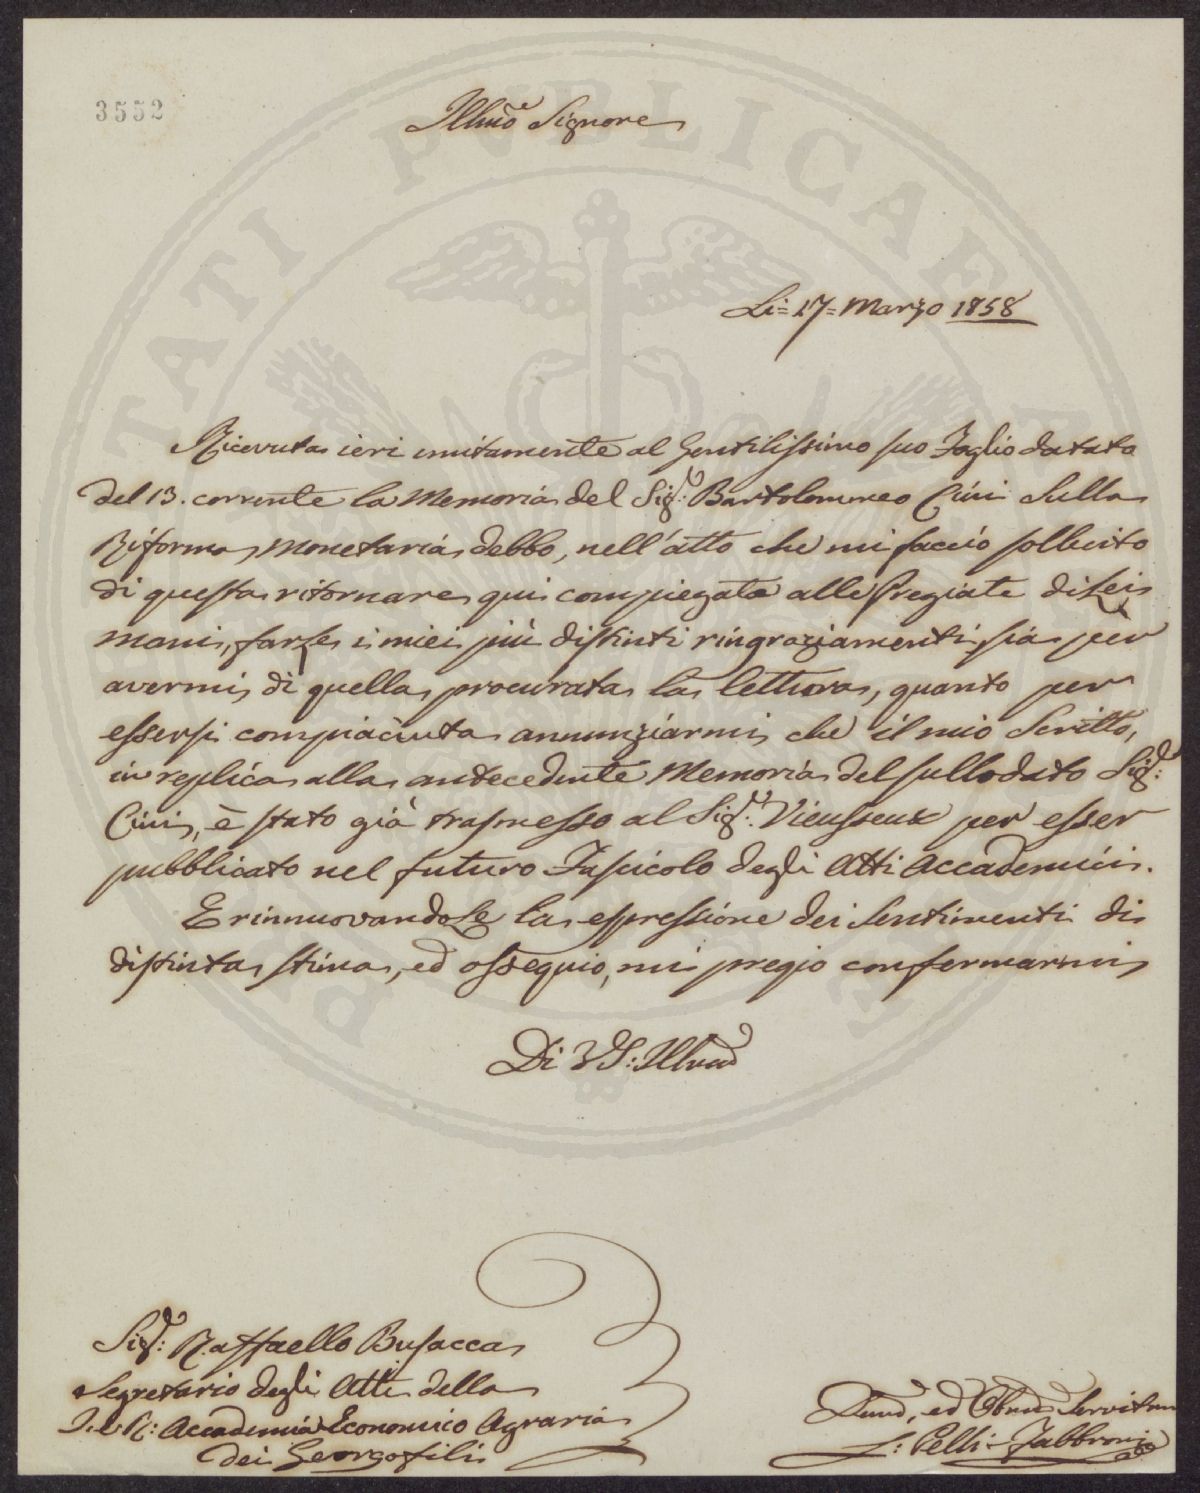 3552
Illmo Signore
Li = 17 = Marzo 1858
Ricevuta ieri unitamente al Gentilissimo suo Foglio datato
del 13. corrente la Memoria del Sigr: Bartolommeo Cini Sulla
Riforma Monetaria, debbo, nell'atto che mi faccio sollecito
di questa ritornare qui compiegata alle Pregiate di Lei
mani, farLe i miei più distinti ringraziamenti sia per
avermi di quella procurata la lettura, quanto per
essersi compiaciuta annunziarmi che il mio Scritto,
in replica alla antecedente Memoria del sullodato Sigr:
Cini, è stato già trasmesso al Sigr: Vieusseux per esser
pubblicato nel futuro Fascicolo degli Atti Accademici.
E rinnuovandoLe la espressione dei Sentimenti di
distinta stima, ed ossequio, mi pregio confermarmi
Di VS: Illma
Sigr: Raffaello Busacca
Segretario degli Atti della
I. e R: Accademia Economico Agraria
dei Georgofili
Devmo, ed Obbmo Servitore
L: Pelli-Fabbroni
PUBLICAE